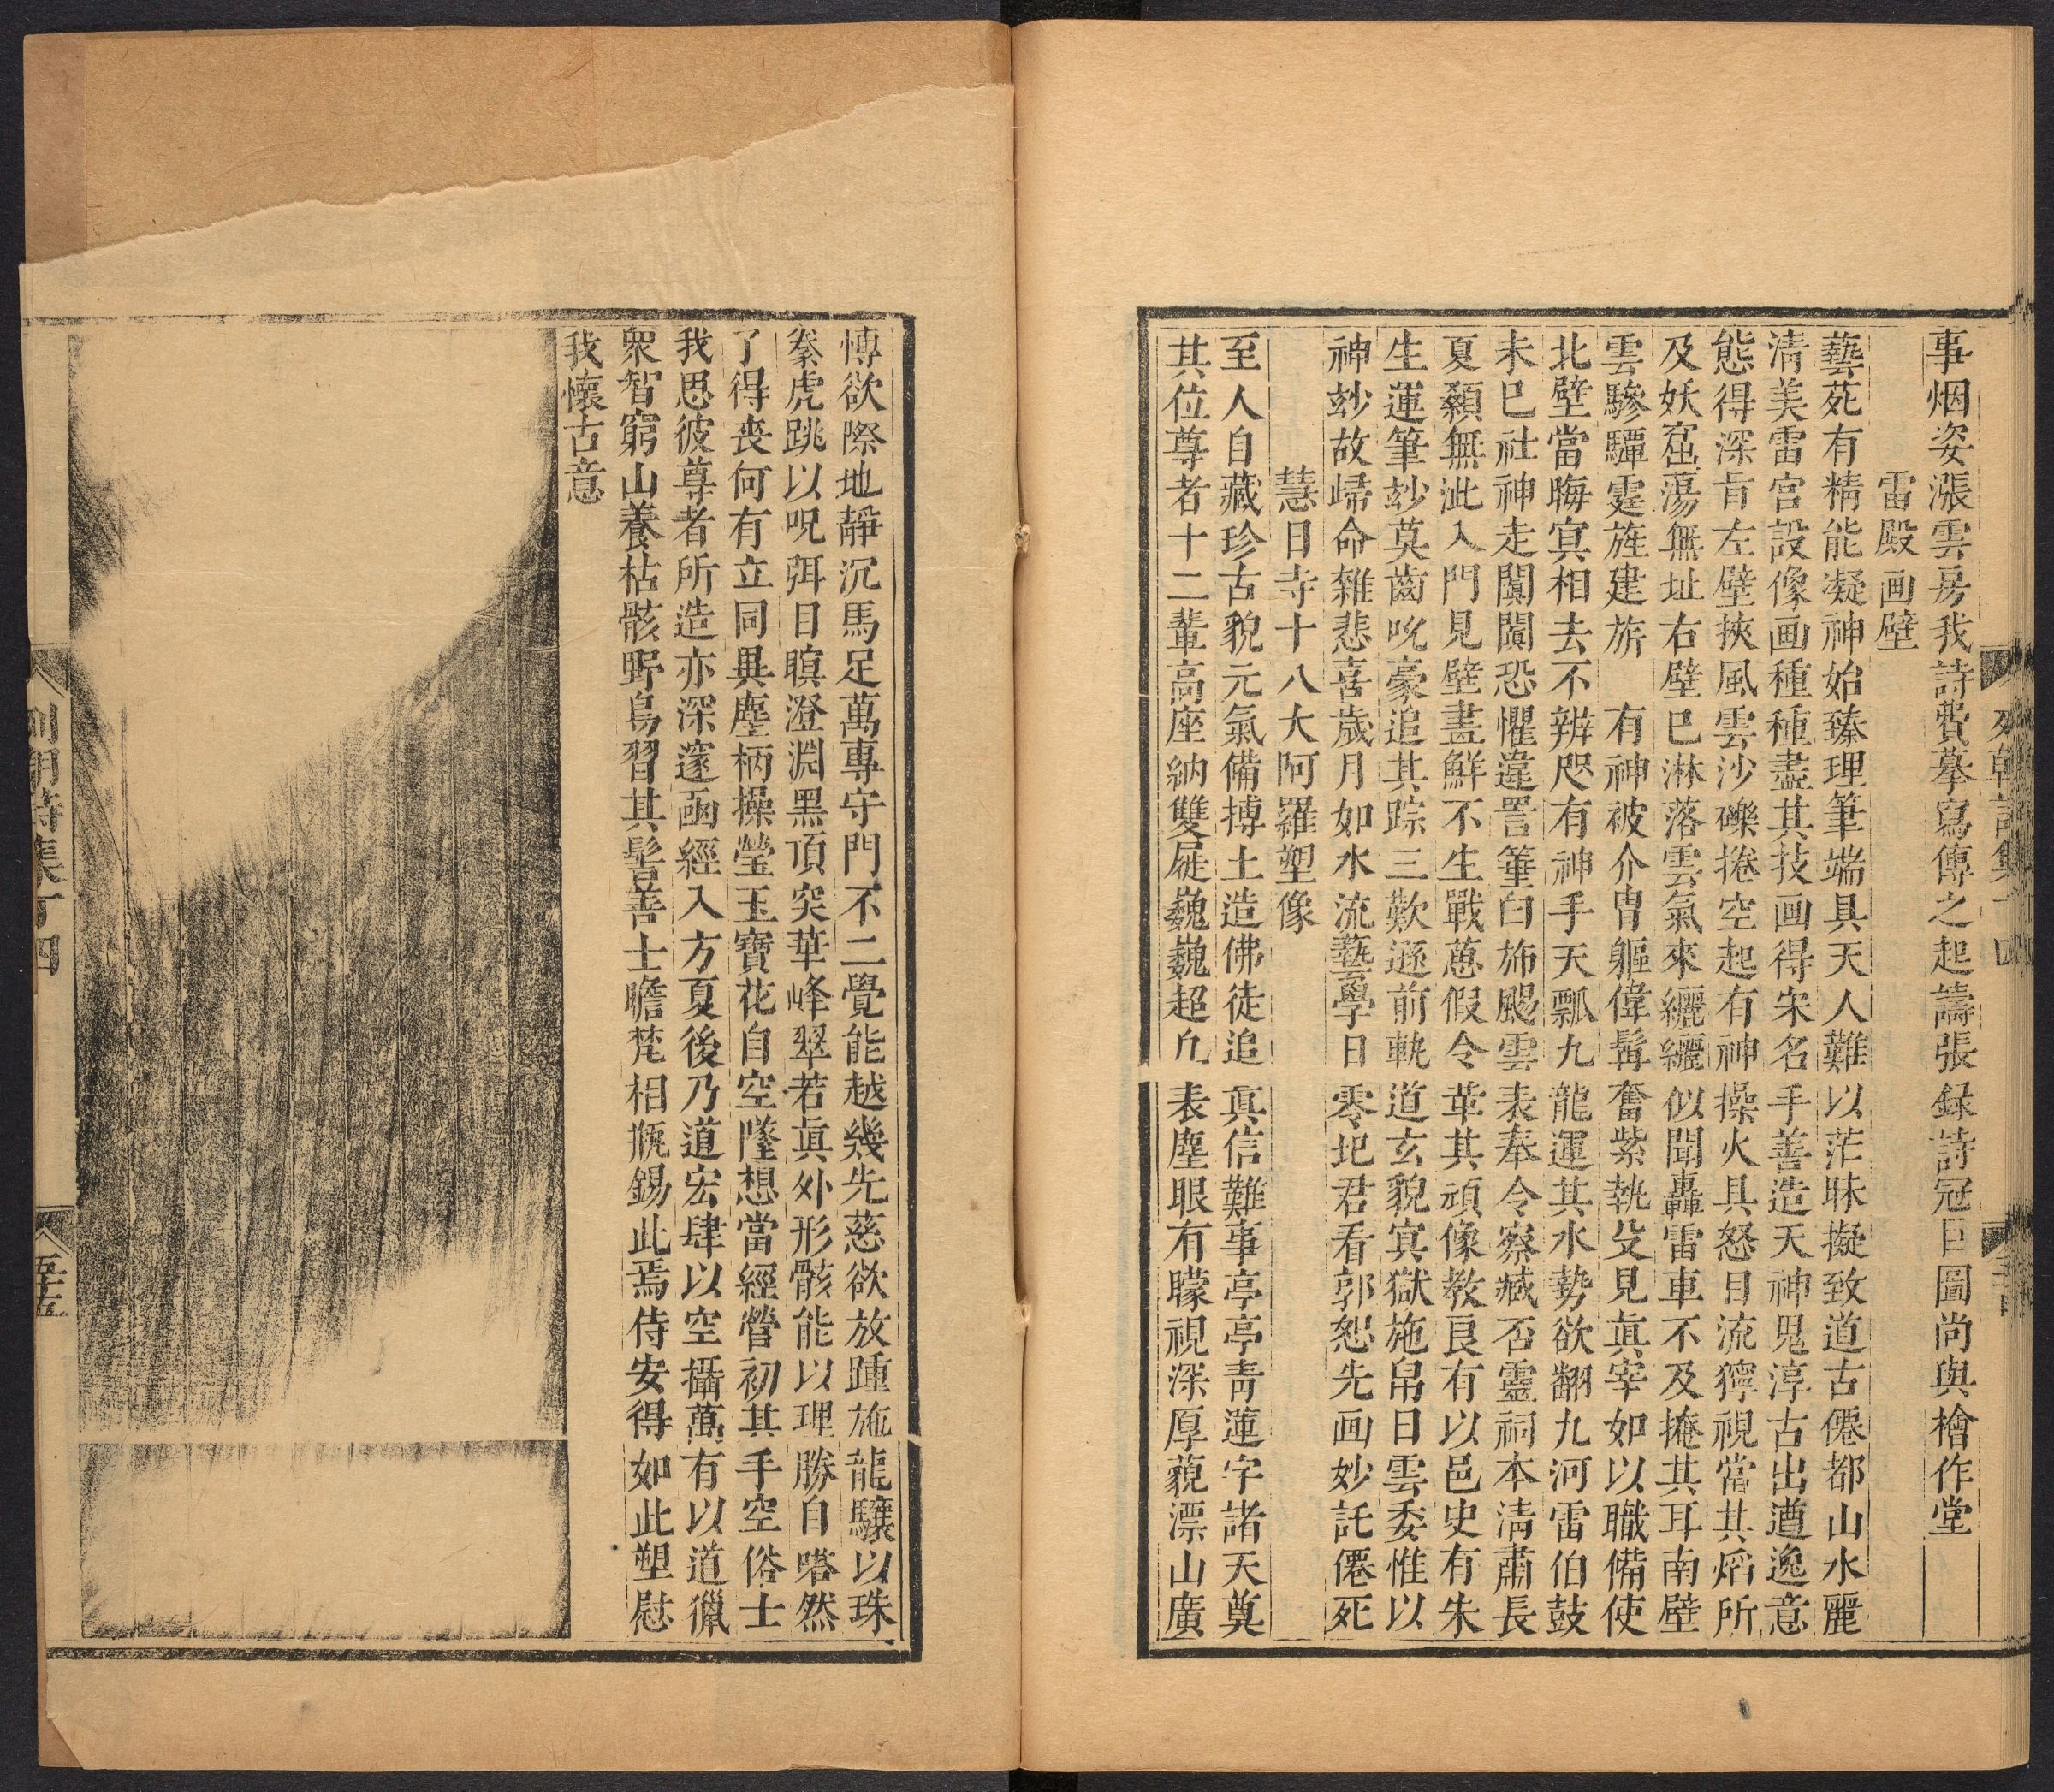 事烟姿漲雲房我詩費摹寫傳之起譸張録詩冠巨圖尚與檜作堂
雷殿画壁
藝苑有精能凝神始臻理筆端具天人難以茫昧擬致道古僊都山水麗
淸美雷宮設像画種種盡其技画得宋名手善造天神鬼淳古出遒逸意
態得深肯左壁挾風雲沙礫捲空起有神操火具怒目流獰視當其熖所
及妖窟蕩無址右壁巳淋落雲氣來纚纚似聞轟雷車不及掩其耳南壁
雲驂驔霆旌建旂 有神被介冑軀偉髯奮紫執殳見眞宰如以職備使
北壁當晦㝠相去不辨咫有神手天瓢九龍運其水勢欲翻九河雷伯鼓
未巳社神走闐闐恐懼違詈箠白旆颺雲表奉令察臧否靈祠本淸肅長
夏顙無泚入門見壁畫鮮不生戰葸假令革其頑像教良有以邑史有朱
生運筆玅莫齒吮豪追其踪三歎遜前軌道玄貌㝠獄施帛日雲委惟以
神玅故歸命雜悲喜歲月如水流藝學日零圯君看郭恕先画妙託僊死
慧日寺十八大阿羅塑像
至人自藏珍古貌元氣備摶土造佛徒追眞信難事亭亭靑蓮宇諸天奠
其位尊者十二輩高座納雙屣巍巍超凢表塵眼有矇視深厚藐漂山廣
愽欲際地靜沉馬足萬專守門不二覺能越幾先慈欲放踵施龍驤以珠
豢虎跳以呪弭目瞋澄淵黑頂突華峰翠若眞外形骸能以理勝自嗒然
了得喪何有立同異塵柄操瑩玉寶花自空墜想當經營初其手空俗士
我思彼尊者所造亦深邃函經入方夏後乃道宏肆以空攝萬有以道獵
衆智窮山養枯骸野鳥習其髻善士瞻梵相瓶錫此焉侍安得如此塑慰
我懷古意
列朝詩集丁四
五十五